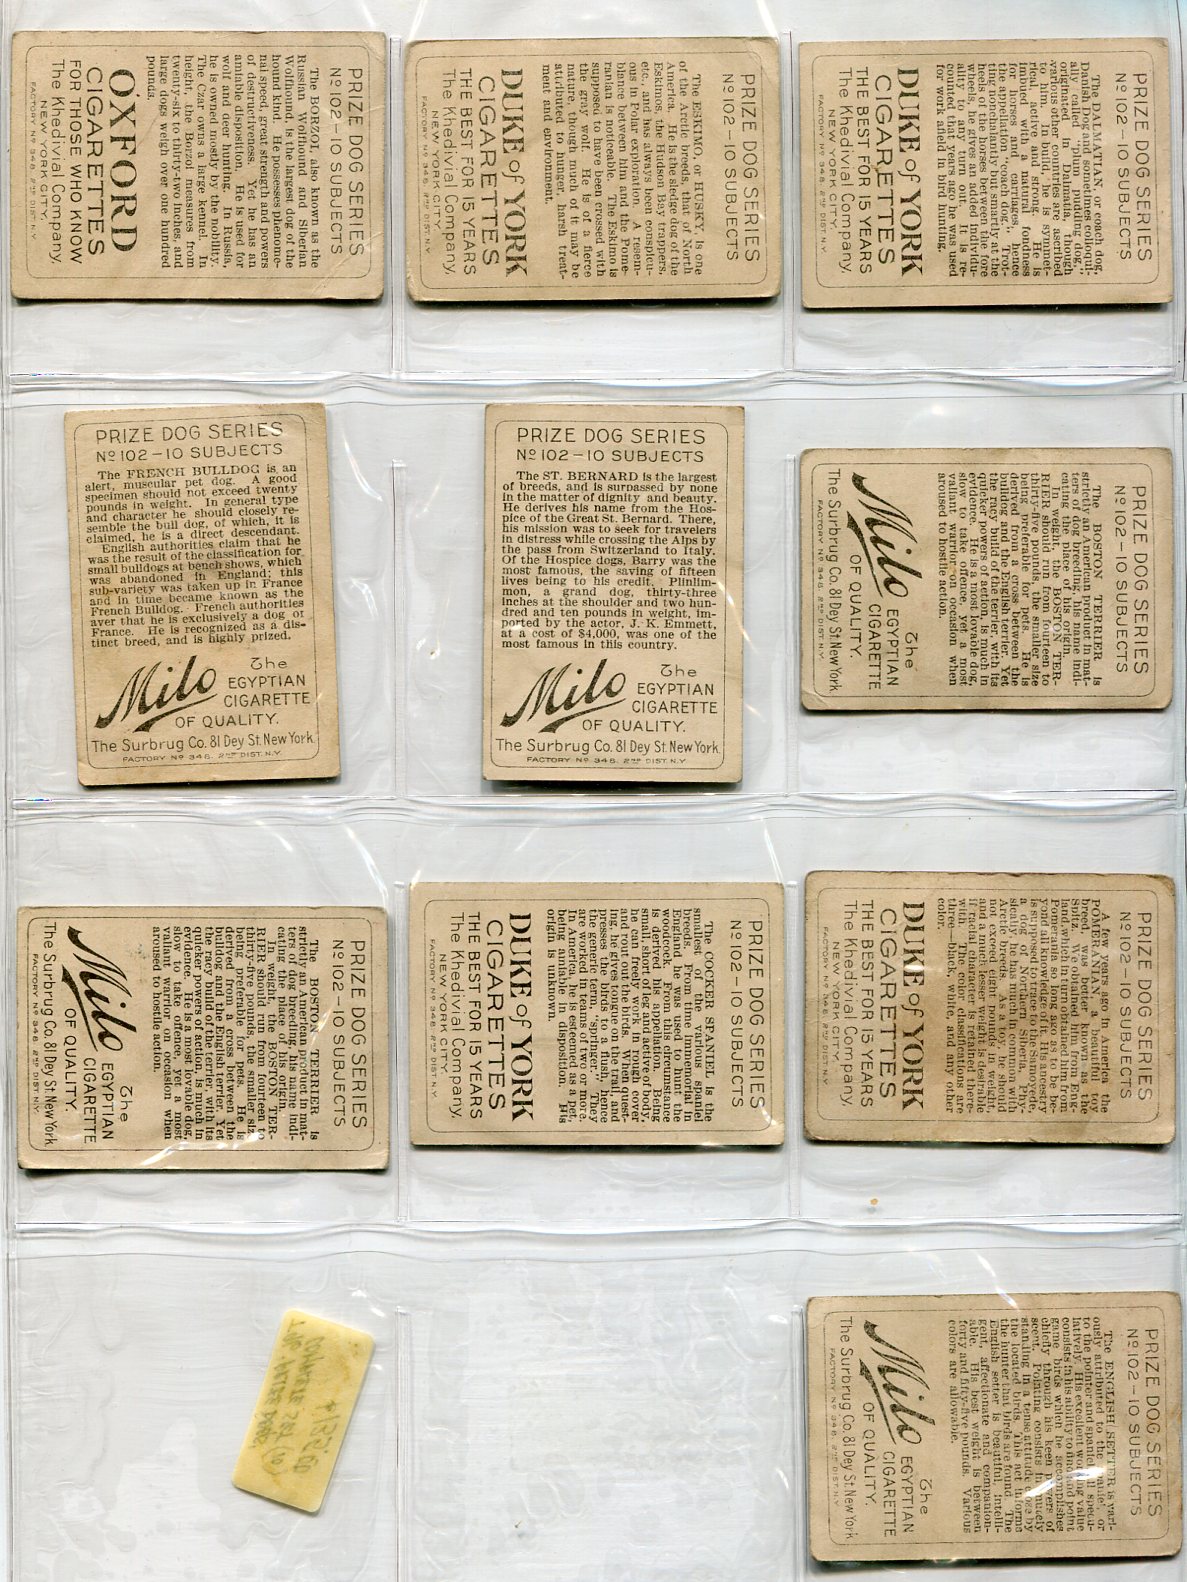 PRIZE DOG SERIES
Nº 102–10 SUBJECTS
The BORZOI, also known as the
Russian Wolfhound and Siberian
Wolfhound, is the largest dog of the
hound kind. He possesses phenome-
nal speed, great strength and powers
of destructiveness. Yet he is of an
amiable disposition. He is used for
wolf and deer hunting. In Russia,
he is owned mostly by the nobility.
The Czar owns a large kennel. In
height, the Borzoi measures from
twenty-six to thirty-two inches, and
large dogs weigh over one hundred
pounds.
OXFORD
CIGARETTES
FOR THOSE WHO KNOW
The Khedivial Company,
NEW YORK CITY.
FACTORY Nº 348, 2ND DIST. N.Y.
PRIZE DOG SERIES
Nº 102–10 SUBJECTS
The ESKIMO, or HUSKY, is one
of the Arctic breeds, that of North
America. He is the sledge dog of the
Eskimos, the Hudson Bay trappers,
etc., and has always been conspicu-
ous in Polar exploration. A resem-
blance between him and the Pome-
ranian is noticeable. The Eskimo is
supposed to have been crossed with
the gray wolf. He is of a fierce
nature, though much of it may be
attributed to hunger, harsh treat-
ment and environment.
DUKE of YORK
CIGARETTES
THE BEST FOR 15 YEARS
The Khedivial Company,
NEW YORK CITY.
FACTORY Nº 348, 2ND DIST. N.Y.
PRIZE DOG SERIES
Nº 102–10 SUBJECTS
The DALMATIAN, or coach dog,
Danish Dog and sometimes colloqui-
ally called "plum pudding dog,"
originated in Dalmatia, though
various other countries are ascribed
to him. In build, he is symmet-
rical, active and strong. He is
imbued with a natural fondness
for horses and carriages, hence
the appellation "coach dog." Trot-
ting nonchalantly but warily at the
heels of the horses between the fore
wheels, he gives an added individu-
ality to any turn out. It is re-
counted that years ago he was used
for a field in bird hunting.
DUKE of YORK
CIGARETTES
THE BEST FOR 15 YEARS
The Khedivial Company,
NEW YORK CITY.
FACTORY Nº 348, 2ND DIST. N.Y.
PRIZE DOG SERIES
Nº 102–10 SUBJECTS
The FRENCH BULLDOG is an
alert, muscular pet dog. A good
specimen should not exceed twenty
pounds in weight. In general type
and character he should closely re-
semble the bull dog, of which, it is
claimed, he is a direct descendant.
English authorities claim that he
was the result of the classification for
small bulldogs at bench shows, which
was abandoned in England; this
sub-variety was taken up in France
and in time became known as the
French Bulldog. French authorities
aver that he is exclusively a dog of
France. He is recognized as a dis-
tinct breed, and is highly prized.
Milo The
EGYPTIAN
CIGARETTE
OF QUALITY.
The Surbrug Co. 81 Dey St. New York
FACTORY Nº 348. 2ND DIST. N.Y.
PRIZE DOG SERIES
Nº 102–10 SUBJECTS
The ST. BERNARD is the largest
of breeds, and is surpassed by none
in the matter of dignity and beauty.
He derives his name from the Hos-
pice of the Great St. Bernard. There,
his mission was to seek for travelers
in distress while crossing the Alps by
the pass from Switzerland to Italy.
Of the Hospice dogs, Barry was the
most famous, the saving of fifteen
lives being to his credit. Plinlim-
mon, a grand dog, thirty-three
inches at the shoulder and two hun-
dred and ten pounds in weight, im-
ported by the actor, J. K. Emmett,
at a cost of $4,000, was one of the
most famous in this country.
Milo The
EGYPTIAN
CIGARETTE
OF QUALITY.
The Surbrug Co. 81 Dey St. New York
FACTORY Nº 348. 2ND DIST. N.Y.
PRIZE DOG SERIES
Nº 102–10 SUBJECTS
The BOSTON TERRIER is
strictly an American product in mat-
ters of dog breeding, his name indi-
cating the place of his origin.
In weight, the BOSTON TER-
RIER should run from fourteen to
thirty-five pounds, the smaller size
being preferable for pets. He is
derived from a cross between the
bulldog and the English terrier. Yet
the racy build of the terrier, with its
quicker powers of action, is much in
evidence. He is a most lovable dog,
slow to take offence, yet a most
valiant warrior on occasion when
aroused to hostile action.
Milo The
EGYPTIAN
CIGARETTE
OF QUALITY.
The Surbrug Co. 81 Dey St. New York
FACTORY Nº 348. 2ND DIST. N.Y.
PRIZE DOG SERIES
Nº 102–10 SUBJECTS
The BOSTON TERRIER is
strictly an American product in mat-
ters of dog breeding, his name indi-
cating the place of his origin.
In weight, the BOSTON TER-
RIER should run from fourteen to
thirty-five pounds, the smaller size
being preferable for pets. He is
derived from a cross between the
bulldog and the English terrier. Yet
the racy build of the terrier, with its
quicker powers of action, is much in
evidence. He is a most lovable dog,
slow to take offence, yet a most
valiant warrior on occasion when
aroused to hostile action.
Milo The
EGYPTIAN
CIGARETTE
OF QUALITY.
The Surbrug Co. 81 Dey St. New York
FACTORY Nº 348. 2ND DIST. N.Y.
PRIZE DOG SERIES
Nº 102–10 SUBJECTS
The COCKER SPANIEL is the
smallest of the various spaniel
breeds. From time immemorial in
England he was used to hunt the
woodcock. From this circumstance
is derived his appellation. Being
small, short of leg and active of body,
he can freely work in rough cover
and rout out the birds. When quest-
ing he gives tongue on a trail, and
presses the birds to a flush, hence
the generic term, "springer." They
are worked in teams of two or more.
In America, he is esteemed as a pet,
being amiable in disposition. His
origin is unknown.
DUKE of YORK
CIGARETTES
THE BEST FOR 15 YEARS
The Khedivial Company,
NEW YORK CITY.
FACTORY Nº 348, 2ND DIST. N.Y.
PRIZE DOG SERIES
Nº 102–10 SUBJECTS
A few years ago in America the
POMERANIAN, a beautiful toy
breed, was better known as the
Spitz. We obtained him from Eng-
land, which in turn obtained him from
Pomerania so long ago as to be be-
yond all knowledge of it. His ancestry
is supposed to trace to the Samoyede,
a dog of Northern Siberia. Phy-
sically he has much in common with
Arctic breeds. As a toy he should
not exceed eight pounds in weight,
and a much lesser weight is desirable
if racial character is retained there-
with. The color classifications are
three—black, white, and any other
color.
DUKE of YORK
CIGARETTES
THE BEST FOR 15 YEARS
The Khedivial Company,
NEW YORK CITY.
FACTORY Nº 348, 2ND DIST. N.Y.
PRIZE DOG SERIES
Nº 102–10 SUBJECTS
The ENGLISH SETTER is vari-
ously attributed to the spaniel, or
to the pointer and spaniel, all specu-
latively. His excellent working value
consists in his ability to find and point
game birds which he accomplishes
chiefly through his keen powers of
scent. Pointing consists in mutely
standing in a tense attitude close by
the located birds. This act informs
the hunter that birds are found. The
English setter is beautiful, intelli-
gent, affectionate and companion-
able. His best weight is between
forty and fifty-five pounds. Various
colors are allowable.
Milo The
EGYPTIAN
CIGARETTE
OF QUALITY.
The Surbrug Co. 81 Dey St. New York
FACTORY Nº 348. 2ND DIST. N.Y.